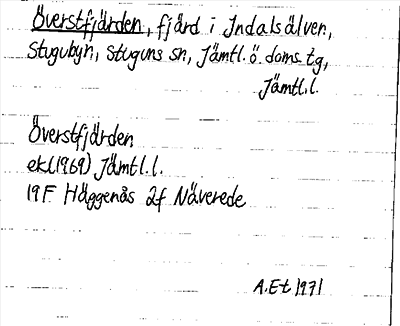 Överstfjärden, fjärd i Indalsälven,
Stugubyn, Stuguns sn, Jämtl. ö. doms. tg,
Jämtl.l.
Överstfjärden
ek.(1969) Jämtl.l.
19F Häggenås 2f Näverede
A.Et 1971